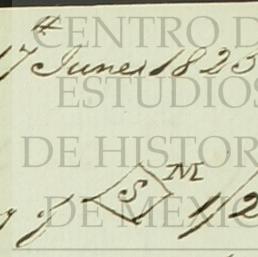 CENTRO D
17th June 1823
ESTUDIOS
DE HISTOR
of S M 1/2
DE MEXIC